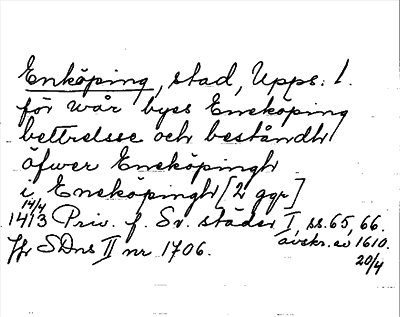 Enköping, stad, Upps. l.
för wår byes Eneköping
bettrelsse och beståndh
öfwer Eneköpingh
i Eneköpingh [2 ggr]
14/4
1413 Priv. f. Sv. städer I, ss. 65, 66.
avskr. av 1610.
Jfr SDns II nr 1706.
20/4